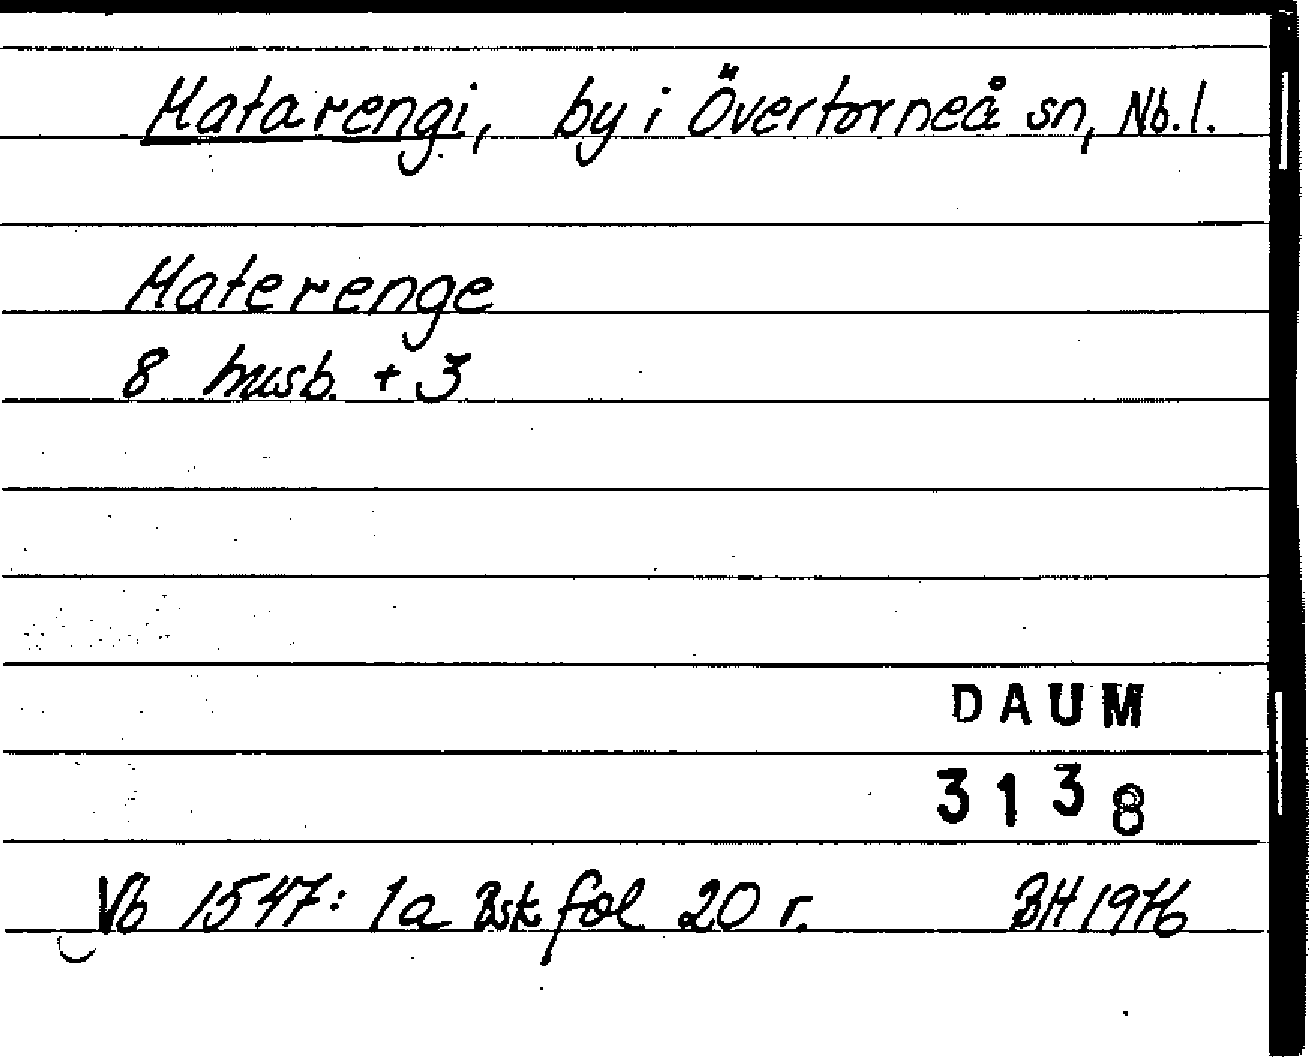 Matarengi, by i Övertorneå sn, Nb.l.
Materenge
8 husb. + 3
DAUM
3138
Vb 1547: 1a Bsk fol 20 r. BH 1976